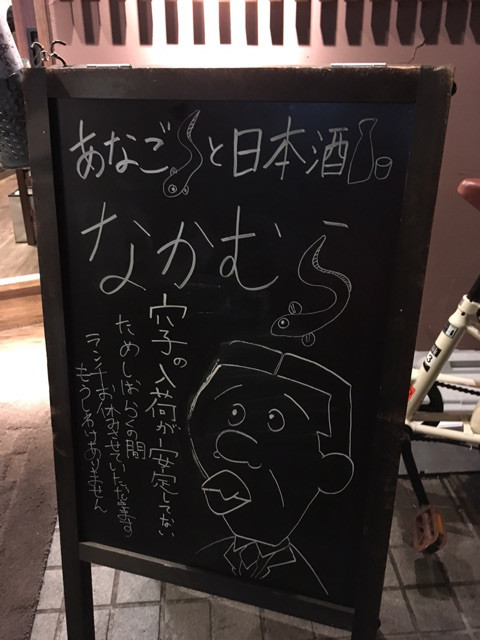 あなごと日本酒
なかむら
穴子の入荷が安定してない
ためしばらくの間
ランチお休みさせていただきます。
もうしわけありません